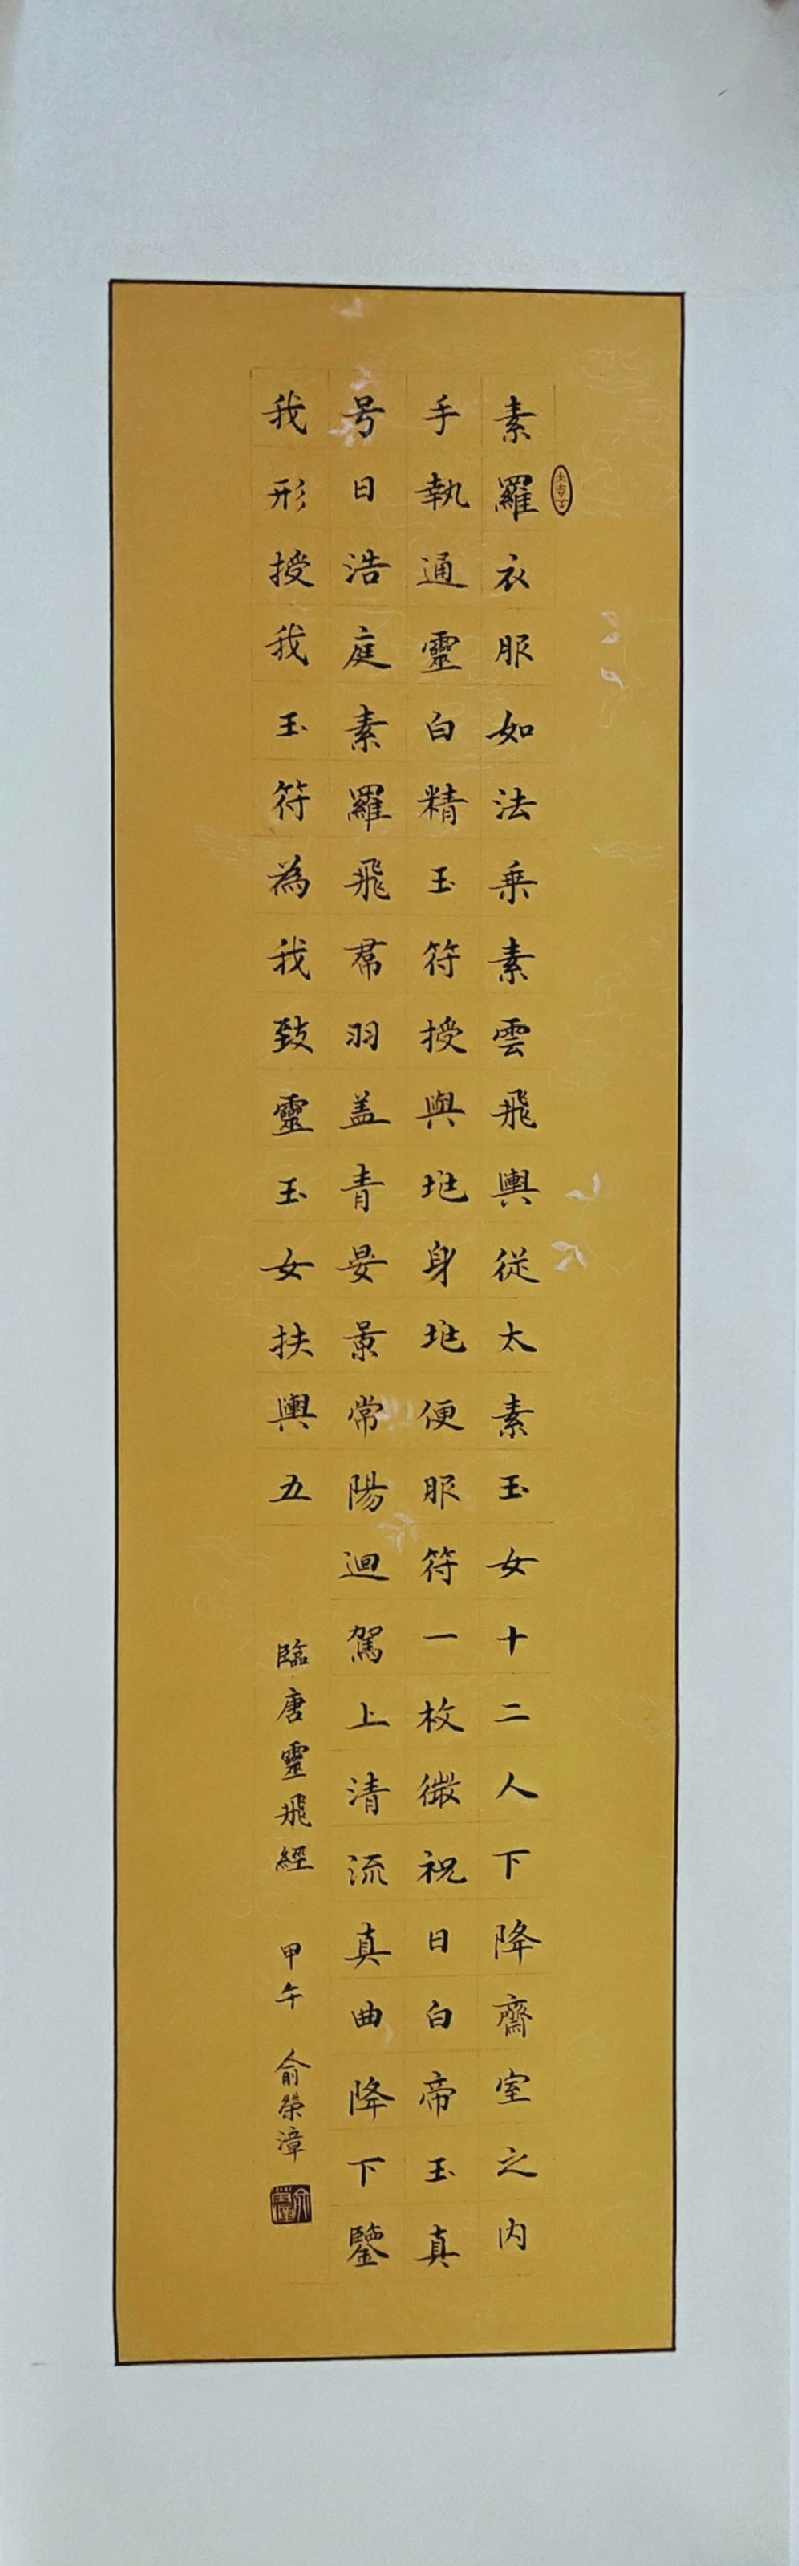 素羅衣服如法乗素雲飛輿從太素玉女十二人下降齋室之内
手執通靈白精玉符授與兆身兆便服符一枚微祝曰白帝玉真
号曰浩庭素羅飛帬羽盖青晏景常陽迴駕上清流真曲降下鑒
我形授我玉符為我致靈玉女扶輿五
臨唐靈飛經 甲午 俞榮漳